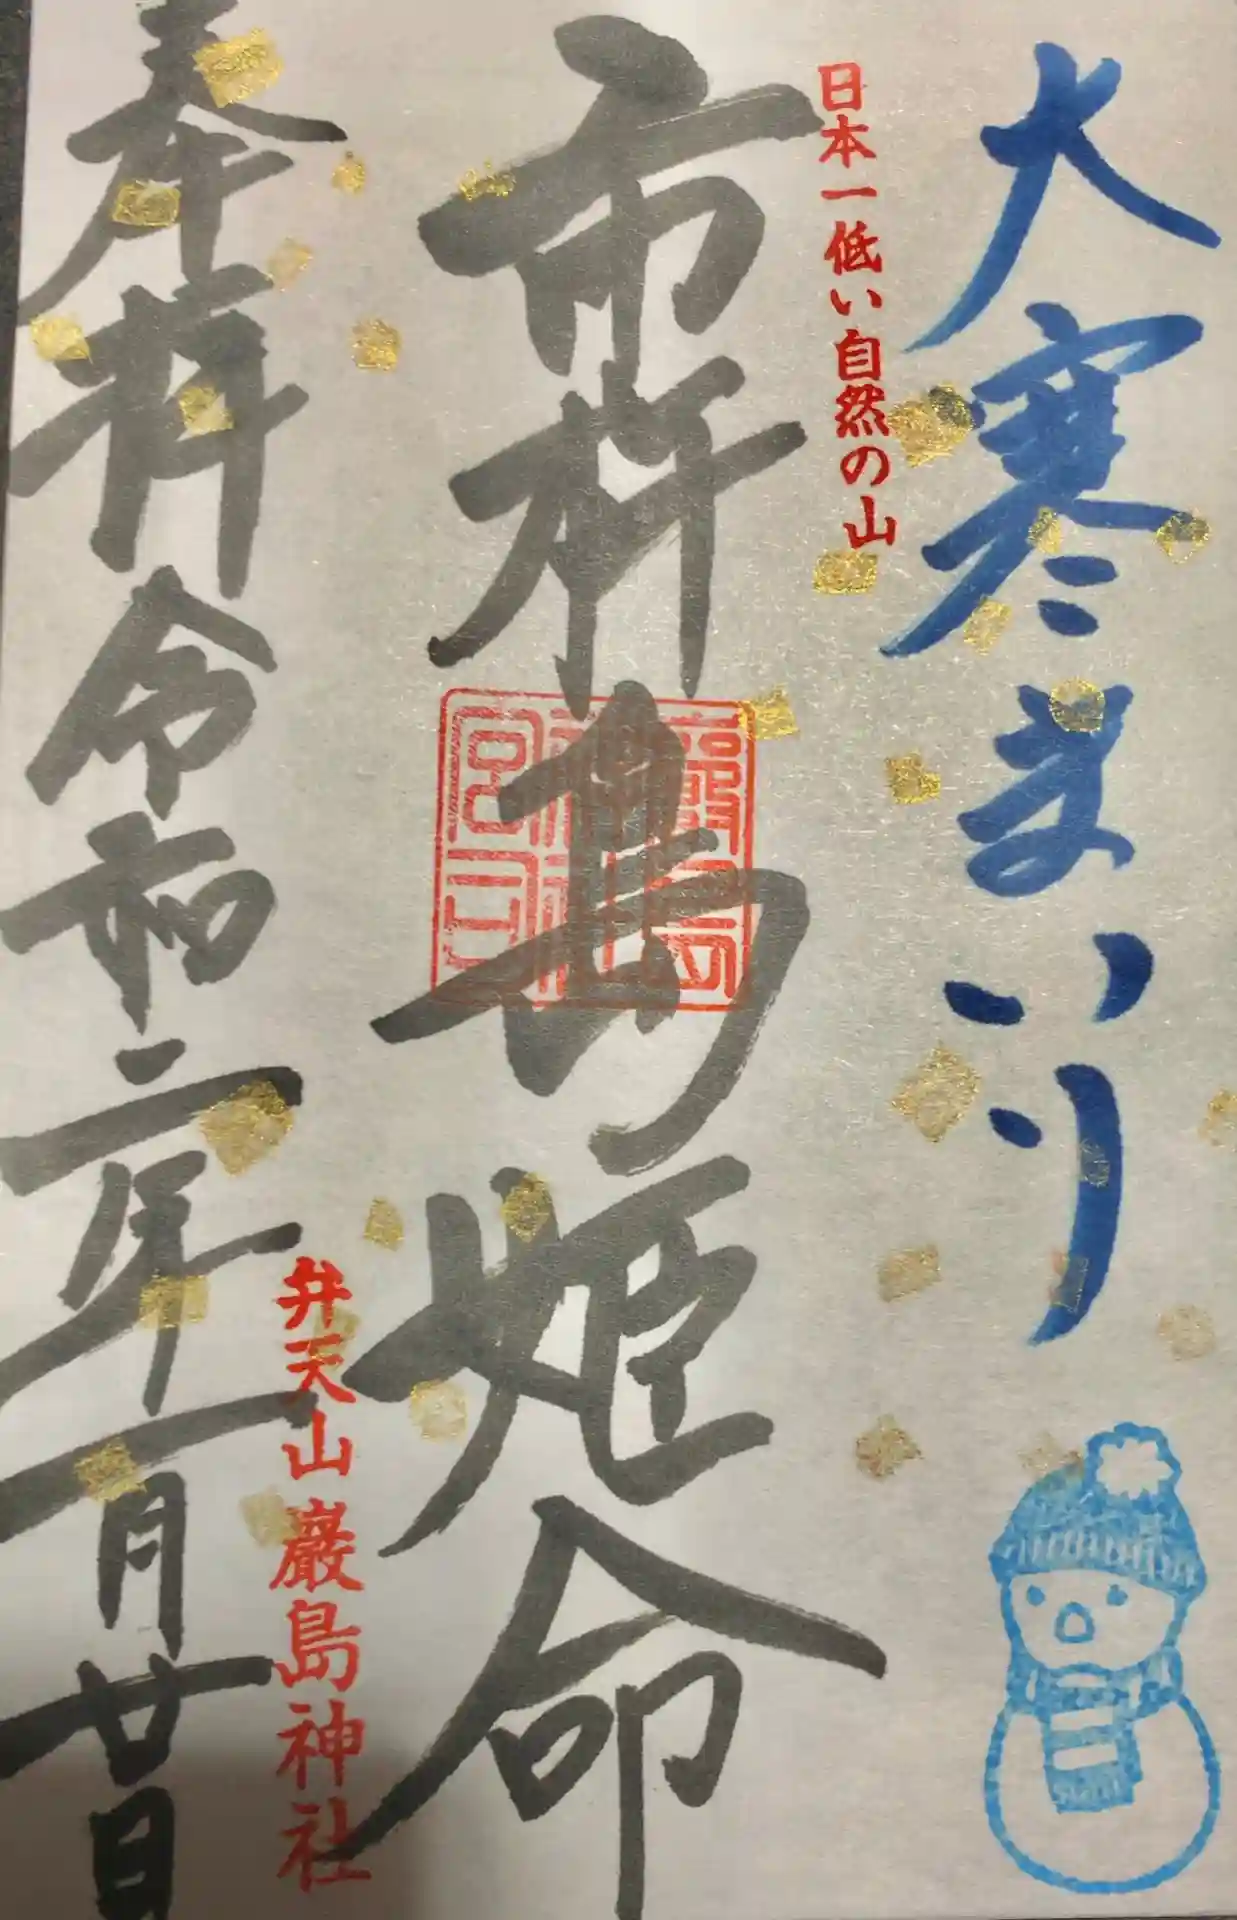 大寒まいり
日本一低い自然の山
市杵島姫命
厳島神社宮司
弁天山 巌島神社
奉拝 令和二年一月廿日